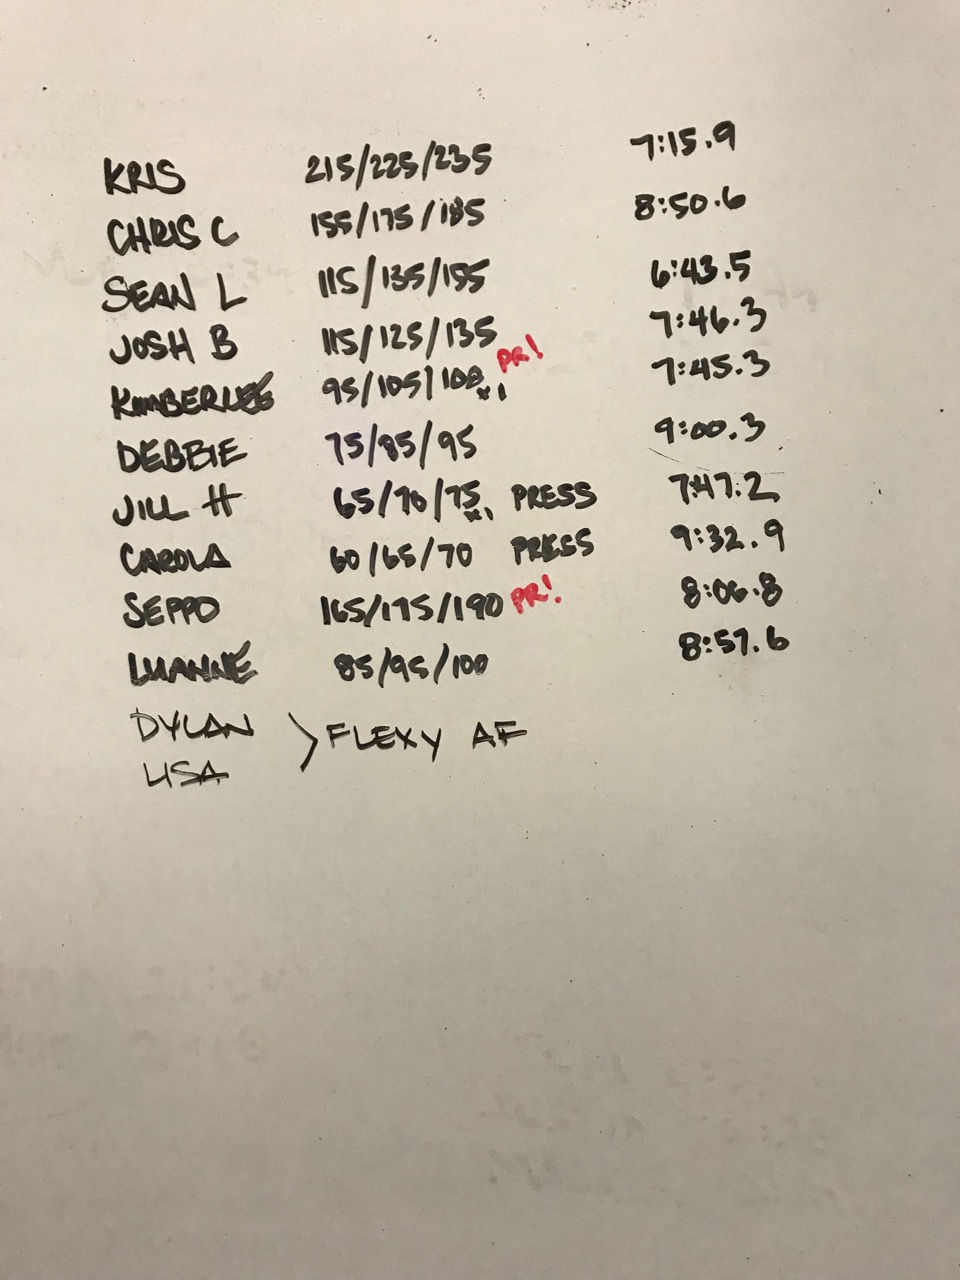 KRIS 215/225/235 7:15.9
CHRIS C 155/175/185 8:50.6
SEAN L 115/135/155 6:43.5
JOSH B 115/125/135 7:46.3
KIMBERLEE 95/105/108 x1 PR! 7:45.3
DEBBIE 75/85/95 9:00.3
JILL H 65/70/75 x1 PRESS 7:47.2
CAROLA 60/65/70 PRESS 9:32.9
SEPPO 165/175/190 PR! 8:06.8
LUANNE 85/95/100 8:57.6
DYLAN
LISA > FLEXY AF